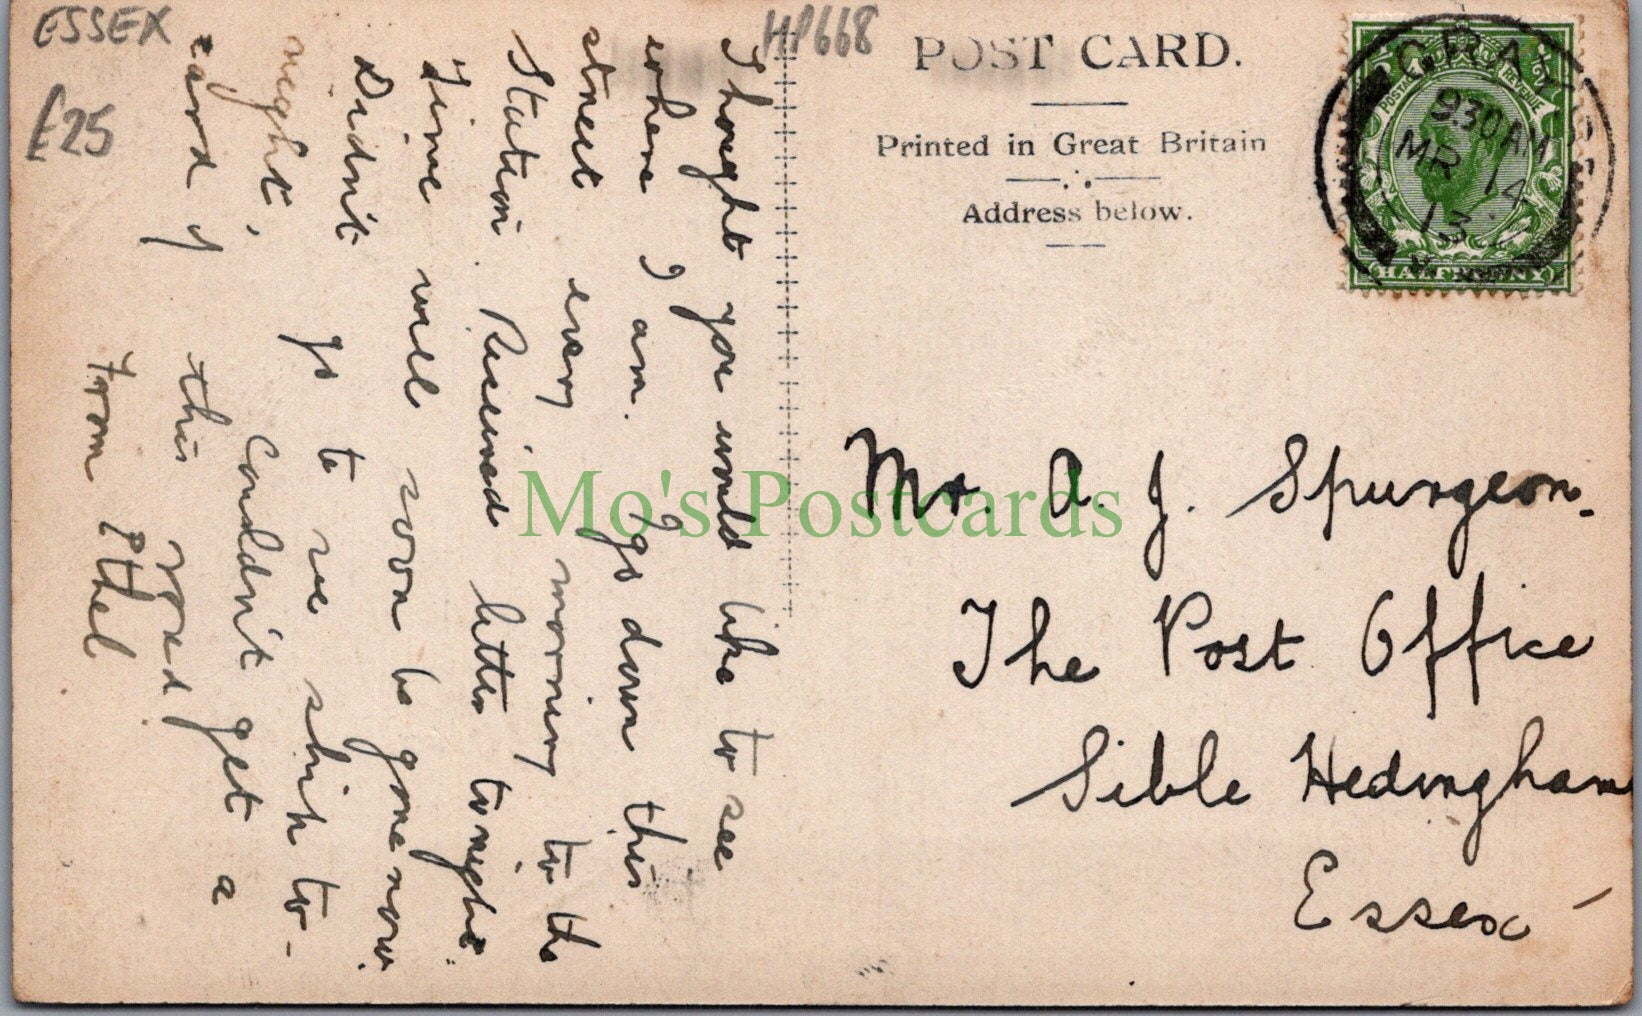 ESSEX
£25
HP668
POST CARD.
Printed in Great Britain
Address below.
GRAYS
9 30 AM
MR 14
13
POSTAGE REVENUE
HALFPENNY
Thought you would like to see
where I am. I go down this
street every morning to the
Station. Received letter tonight.
Time will soon be gone now.
Didn't go to see ship to-
night, couldn't get a
card of this road.
From Ethel
Mr. A. J. Spurgeon.
The Post Office
Sible Hedingham
Essex
Mo's Postcards